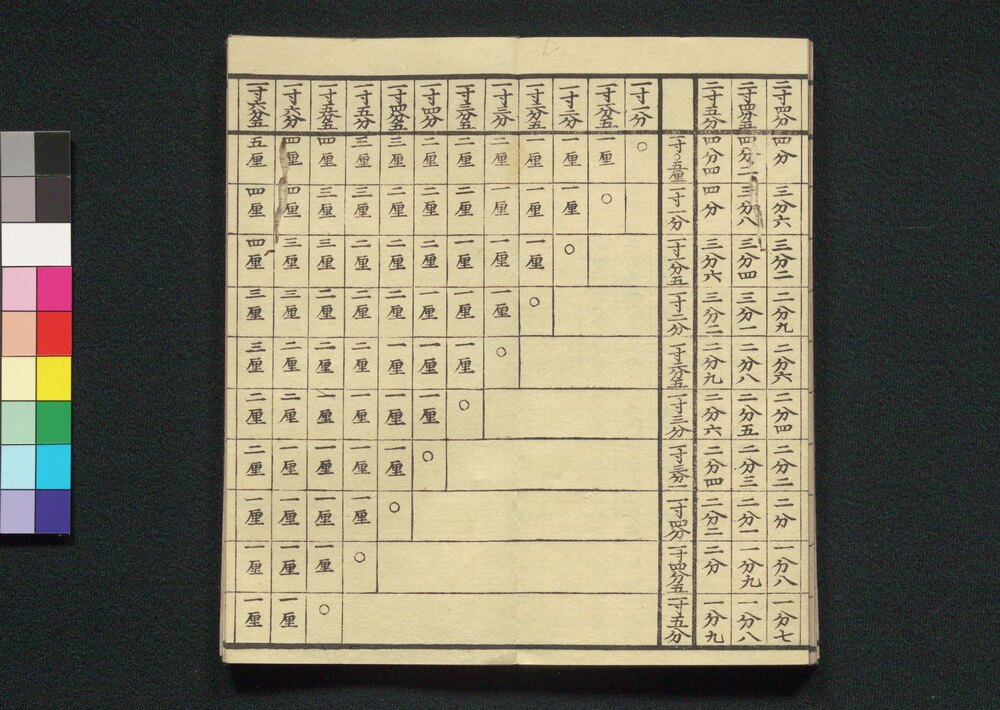 二寸四分 四分 三分六 三分二 二分九 二分六 二分四 二分二 二分 一分八 一分七
二寸四分五 四分二 三分八 三分四 三分一 二分八 二分五 二分三 二分一 一分九 一分八
二寸五分 四分四 四分 三分六 三分二 二分九 二分六 二分四 二分二 二分 一分九
一寸〇五厘 一寸一分 一寸一分五 一寸二分 一寸二分五 一寸三分 一寸三分五 一寸四分 一寸四分五 一寸五分
一寸一分 ○
一寸一分五 一厘 ○
一寸二分 一厘 一厘 ○
一寸二分五 一厘 一厘 一厘 ○
一寸三分 二厘 一厘 一厘 一厘 ○
一寸三分五 二厘 二厘 一厘 一厘 一厘 ○
一寸四分 二厘 二厘 二厘 一厘 一厘 一厘 ○
一寸四分五 三厘 二厘 二厘 二厘 一厘 一厘 一厘 ○
一寸五分 三厘 三厘 二厘 二厘 二厘 一厘 一厘 一厘 ○
一寸五分五 四厘 三厘 三厘 二厘 二厘 一厘 一厘 一厘 一厘 ○
一寸六分 四厘 四厘 三厘 三厘 二厘 二厘 一厘 一厘 一厘 一厘
一寸六分五 五厘 四厘 四厘 三厘 三厘 二厘 二厘 一厘 一厘 一厘